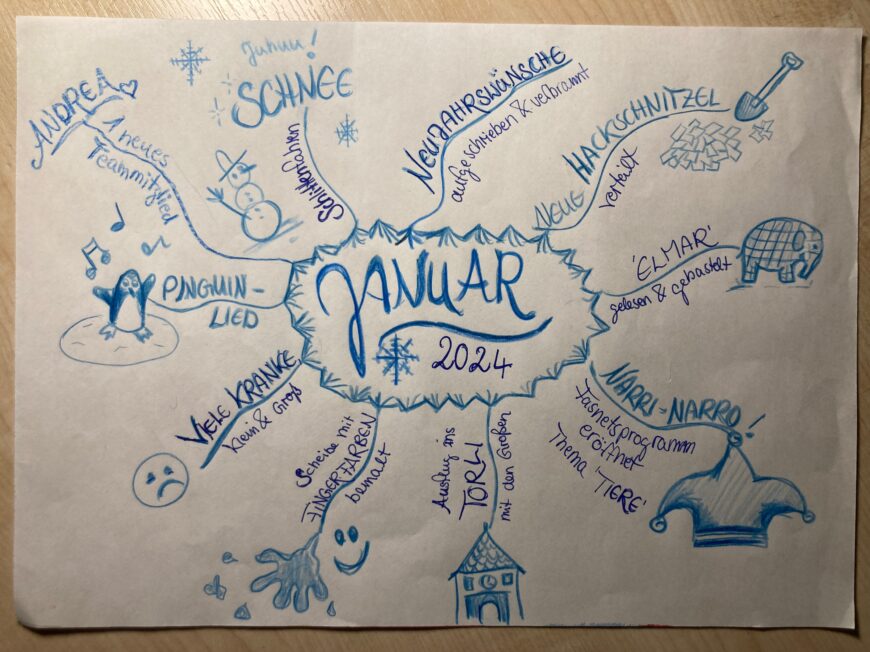 JANUAR
2024
Juhuu!
SCHNEE
Schlittenfahren
NEUJAHRSWÜNSCHE
aufgeschrieben & verbrannt
NEUE HACKSCHNITZEL
verteilt
'ELMAR'
gelesen & gebastelt
NARRI-NARRO!
Fasnetsprogramm
eröffnet
Thema 'TIERE'
Ausflug ins
TÖRLI
mit den Großen
Scheibe mit
FINGERFARBEN
bemalt
VIELE KRANKE,
Klein & Groß
PINGUIN-
LIED
ANDREA
1 neues
Teammitglied